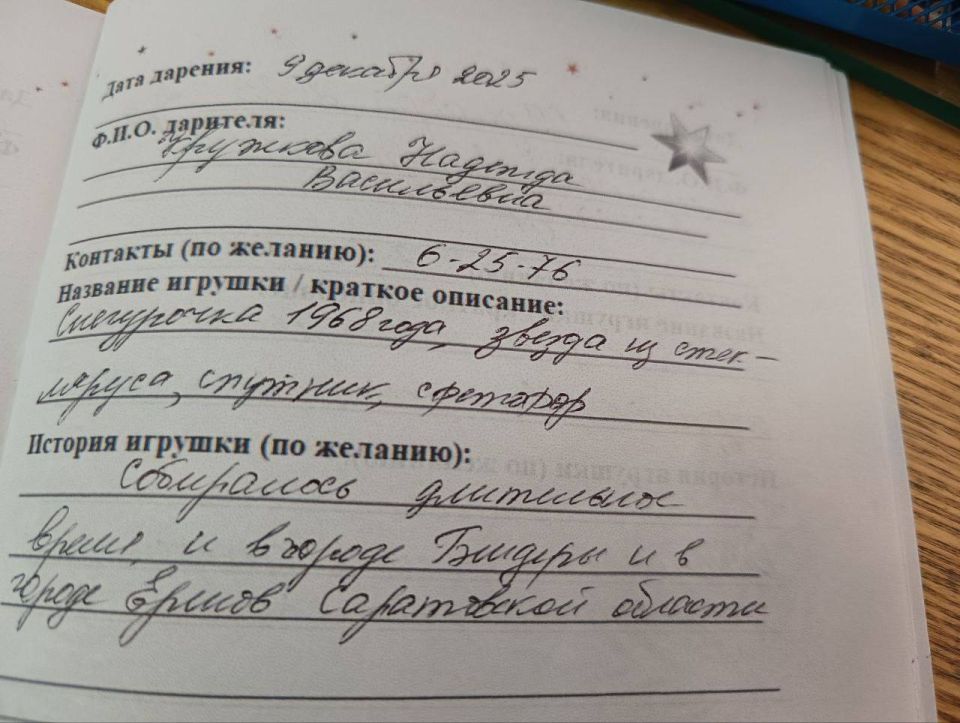 Дата дарения: 9 декабря 2025
Ф.И.О. дарителя:
Кружкова Надежда
Васильевна
Контакты (по желанию): 6-25-76
Название игрушки / краткое описание:
Снегурочка 1968 года, звезда из стек-
ляруса, спутник, сфетофор
История игрушки (по желанию):
Собиралось длительное
время, и в городе Бендеры и в
городе Ершов Саратовской области